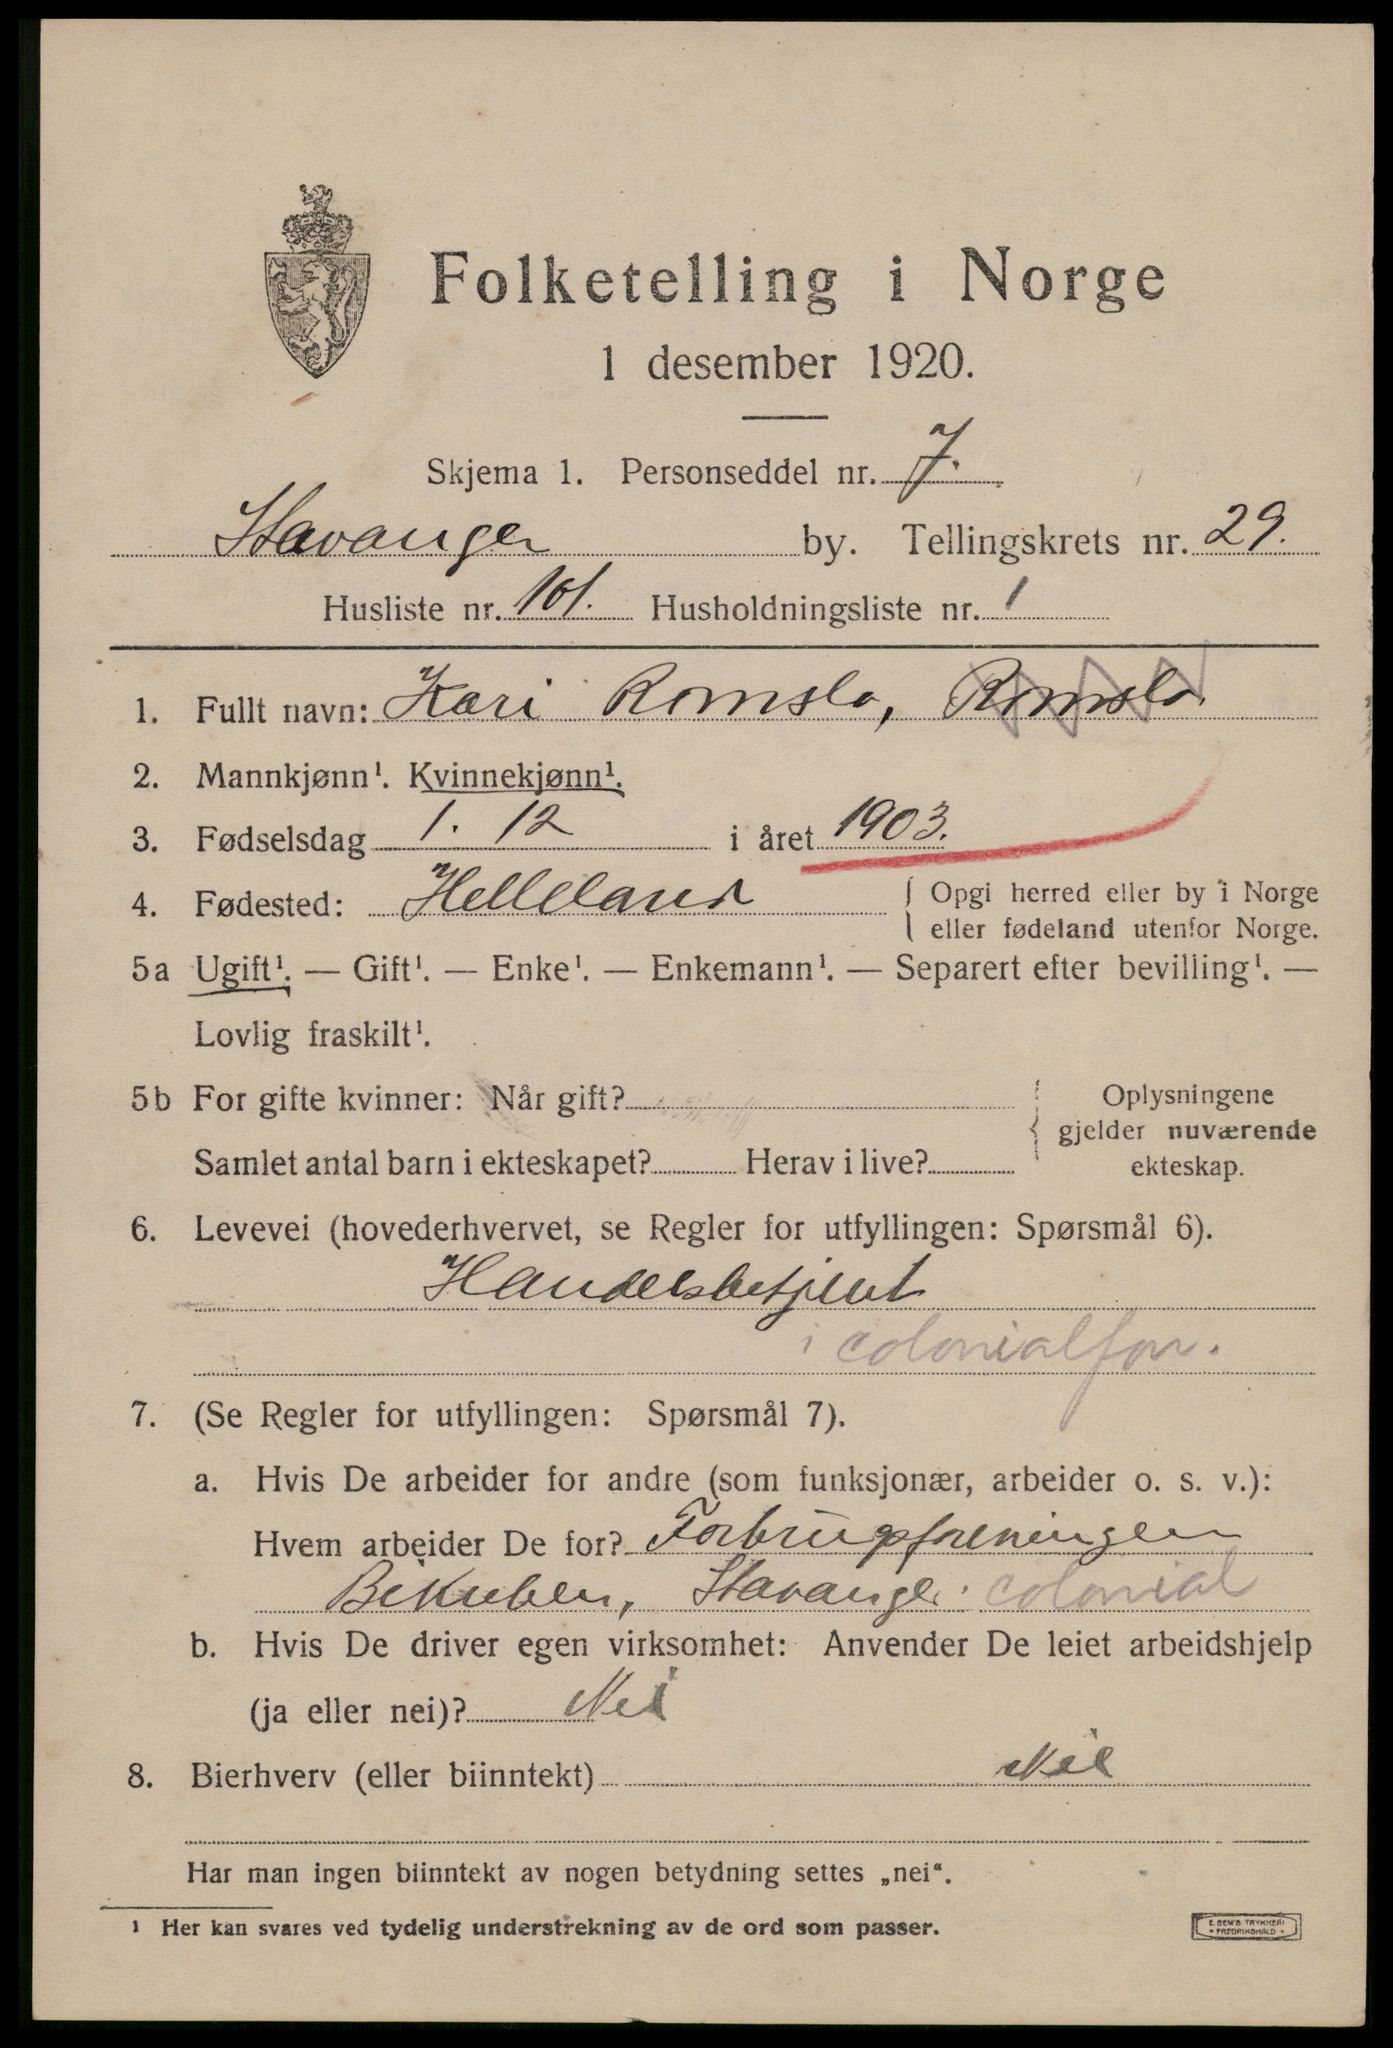 Folketelling i Norge
1 desember 1920.
Skjema 1. Personseddel nr. 7.
Stavanger by. Tellingskrets nr. 29.
Husliste nr. 101. Husholdningsliste nr. 1
1. Fullt navn: Kari Romslo, Romslo.
2. Mannkjønn¹. Kvinnekjønn¹.
3. Fødselsdag 1. 12 i året 1903.
4. Fødested: Helleland { Opgi herred eller by i Norge
eller fødeland utenfor Norge.
5a Ugift¹. — Gift¹. — Enke¹. — Enkemann¹. — Separert efter bevilling¹. —
Lovlig fraskilt¹.
5b For gifte kvinner: Når gift?
Samlet antal barn i ekteskapet? Herav i live?
Oplysningene
gjelder nuværende
ekteskap.
6. Levevei (hovederhvervet, se Regler for utfyllingen: Spørsmål 6).
Handelsbetjent
i colonialfor.
7. (Se Regler for utfyllingen: Spørsmål 7).
a. Hvis De arbeider for andre (som funksjonær, arbeider o. s. v.):
Hvem arbeider De for? Forbrugsforeningen
Bikuben, Stavanger. colonial
b. Hvis De driver egen virksomhet: Anvender De leiet arbeidshjelp
(ja eller nei)? Nei
8. Bierhverv (eller biinntekt) Nei
Har man ingen biinntekt av nogen betydning settes „nei“.
¹ Her kan svares ved tydelig understrekning av de ord som passer.
E. SEM'S TRYKKERI
FREDRIKSHALD